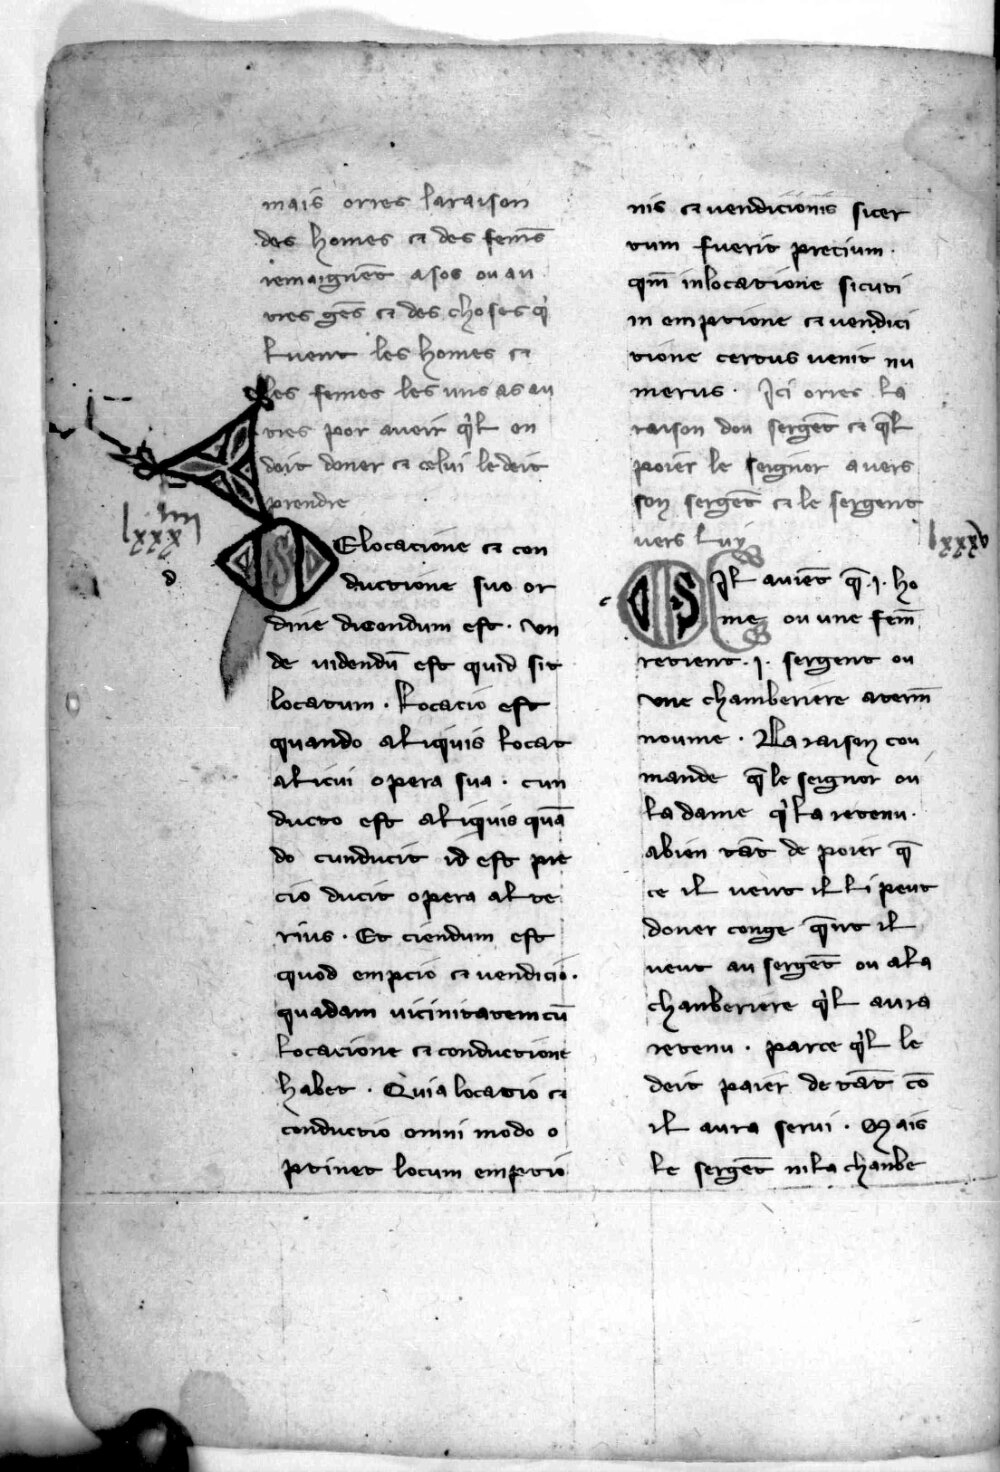 mais orres laraison
des homes ⁊ des femēs
remaignēt asos ou au
tres gēs ⁊ des choses q̓
luent les homes ⁊
les femes les uns as au
tres por aueir q̓l en
doit doner ⁊ celui le deit
prendre
lxxxiiii
d
Elocacione ⁊ con
ductione suo or
dine dicendum est. vn
de uidendū est quid sit
locatum. Locacio est
quando aliquis locat
alicui opera sua. cun
ducto est aliquis quā
do cunducit id est pre
cio ducit opera alte
rius. Et ciendum est
quod empcio ⁊ vendicio.
quadam uicinitatem cū
locacione ⁊ conductione
habet. Quia locatio ⁊
conductio omni modo o
ptinet locum emptio
nis ⁊ vendicionis sicer
tum fuerit precium.
qm̄ inlocatione sicuti
in emptione ⁊ vendici
tione certus uenit nu
merus. Ici orres la
raison dou sergēt ⁊ q̄l
poier le seignor auers
son sergēt ⁊ le sergent
uers luy
lxxxv
S
Il auient q̄ .i. ho
me ou une fem̄
retient .i. sergent ou
vne chamberiere aterm̄
noume. La raison cou
mande q̄ le seignor ou
la dame q̓ la retenu.
abien tāt de poier q̄
ce il veut il li peut
doner conge q̄nt il
veut au sergēt ou ala
chanberiere q̓l aura
retenu. parce q̓l le
deit paier de tāt cō
il aura serui. Mais
le sergēt nila chanbe